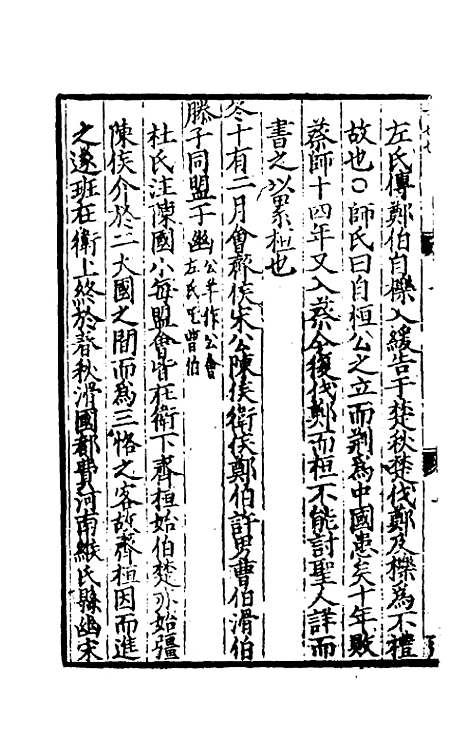 左氏傳鄭伯自櫟入緩告于楚秋楚伐鄭及櫟為不禮
故也○師氏曰自桓公之立而荆為中國患矣十年敗
蔡師十四年又入蔡今復伐鄭而桓不能討聖人詳而
書之以累桓也
冬十有二月會齊侯宋公陳侯衛侯鄭伯許男曹伯滑伯
滕子同盟于幽公羊作公會左氏旡曹伯
杜氏注陳國小每盟會皆在衛下齊桓始伯楚亦始彊
陳侯介於二大國之間而為三恪之客故齊桓因而進
之遂班在衛上終於春秋滑國都費河南緱氏縣幽宋